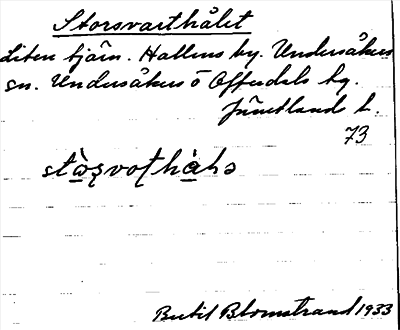 Storsvarthålet
Liten tjärn. Hallens by. Undersåkers
sn. Undersåkers o Offerdals tg.
Jämtlands l.
73
Bertil Blomstrand 1933